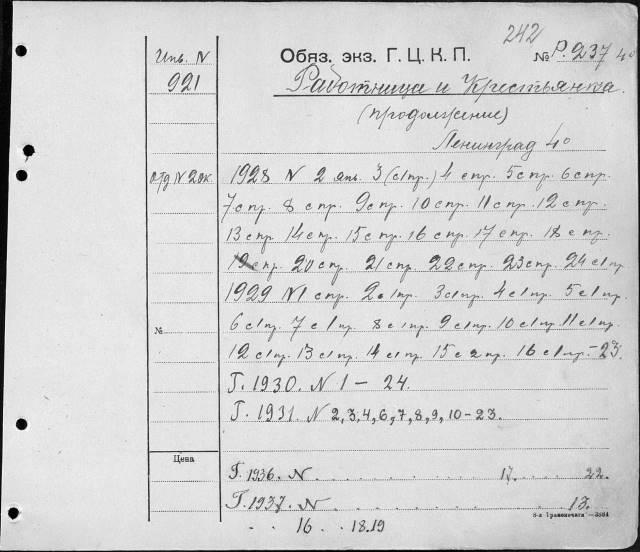 242
Инв. N Обяз. экз. Г. Ц. К. П. № Р. 237 4°
921 Работница и Крестьянка.
(продолжение)
Ленинград 4°
1928 N 2 янв. 3 (с1пр.) 4 спр. 5 спр. 6 спр.
7 спр. 8 спр. 9 спр. 10 спр. 11 спр. 12 спр.
13 спр 14 спр. 15 спр. 16 спр. 17 спр. 18 спр.
19 спр. 20 спр. 21 спр. 22 спр. 23 спр. 24 с1пр
1929 N1 спр. 2 с1пр. 3 с1пр. 4 с1пр. 5 с1пр.
№ 6 с1пр. 7 с1пр. 8 с1пр. 9 с1пр. 10 с1пр. 11 с1пр.
12 с1пр. 13 с1пр. 14 с1пр. 15 с2пр. 16 с1пр. - 23.
Г. 1930. N 1 - 24.
Г. 1931. N 2, 3, 4, 6, 7, 8, 9, 10 - 23.
Цена
Г. 1936. N 17. 22.
Г. 1937. N 13.
16 18.19